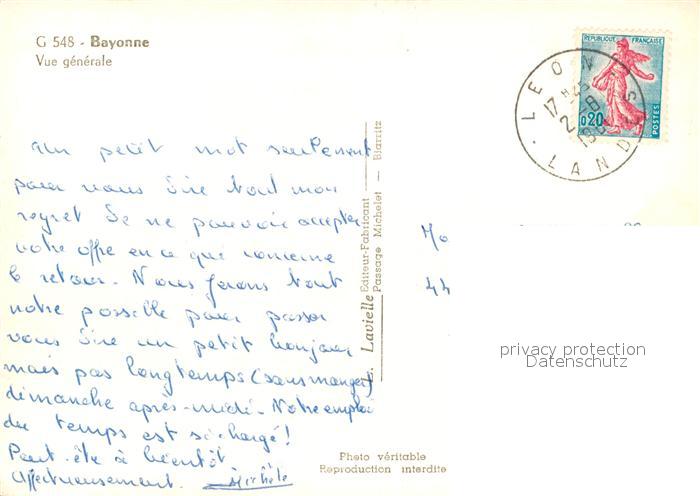 G 548 - Bayonne
Vue générale
REPUBLIQUE FRANÇAISE
0,20
POSTES
LEON
17 H 45
2 - 8
LANDES
Un petit mot seulement
pour vous dire tout mon
regret de ne pouvoir accepter
votre offre en ce qui concerne
le retour. Nous ferons tout
notre possible pour passer
vous dire un petit bonjour
mais pas longtemps (sans manger)
dimanche après-midi. Notre emploi
du temps est si chargé !
Peut-être à bientôt
Affectueusement. Michèle
Lavielle Editeur-Fabricant
Passage Michelet - Biarritz
Mo
44
privacy protection
Datenschutz
Photo véritable
Reproduction interdite